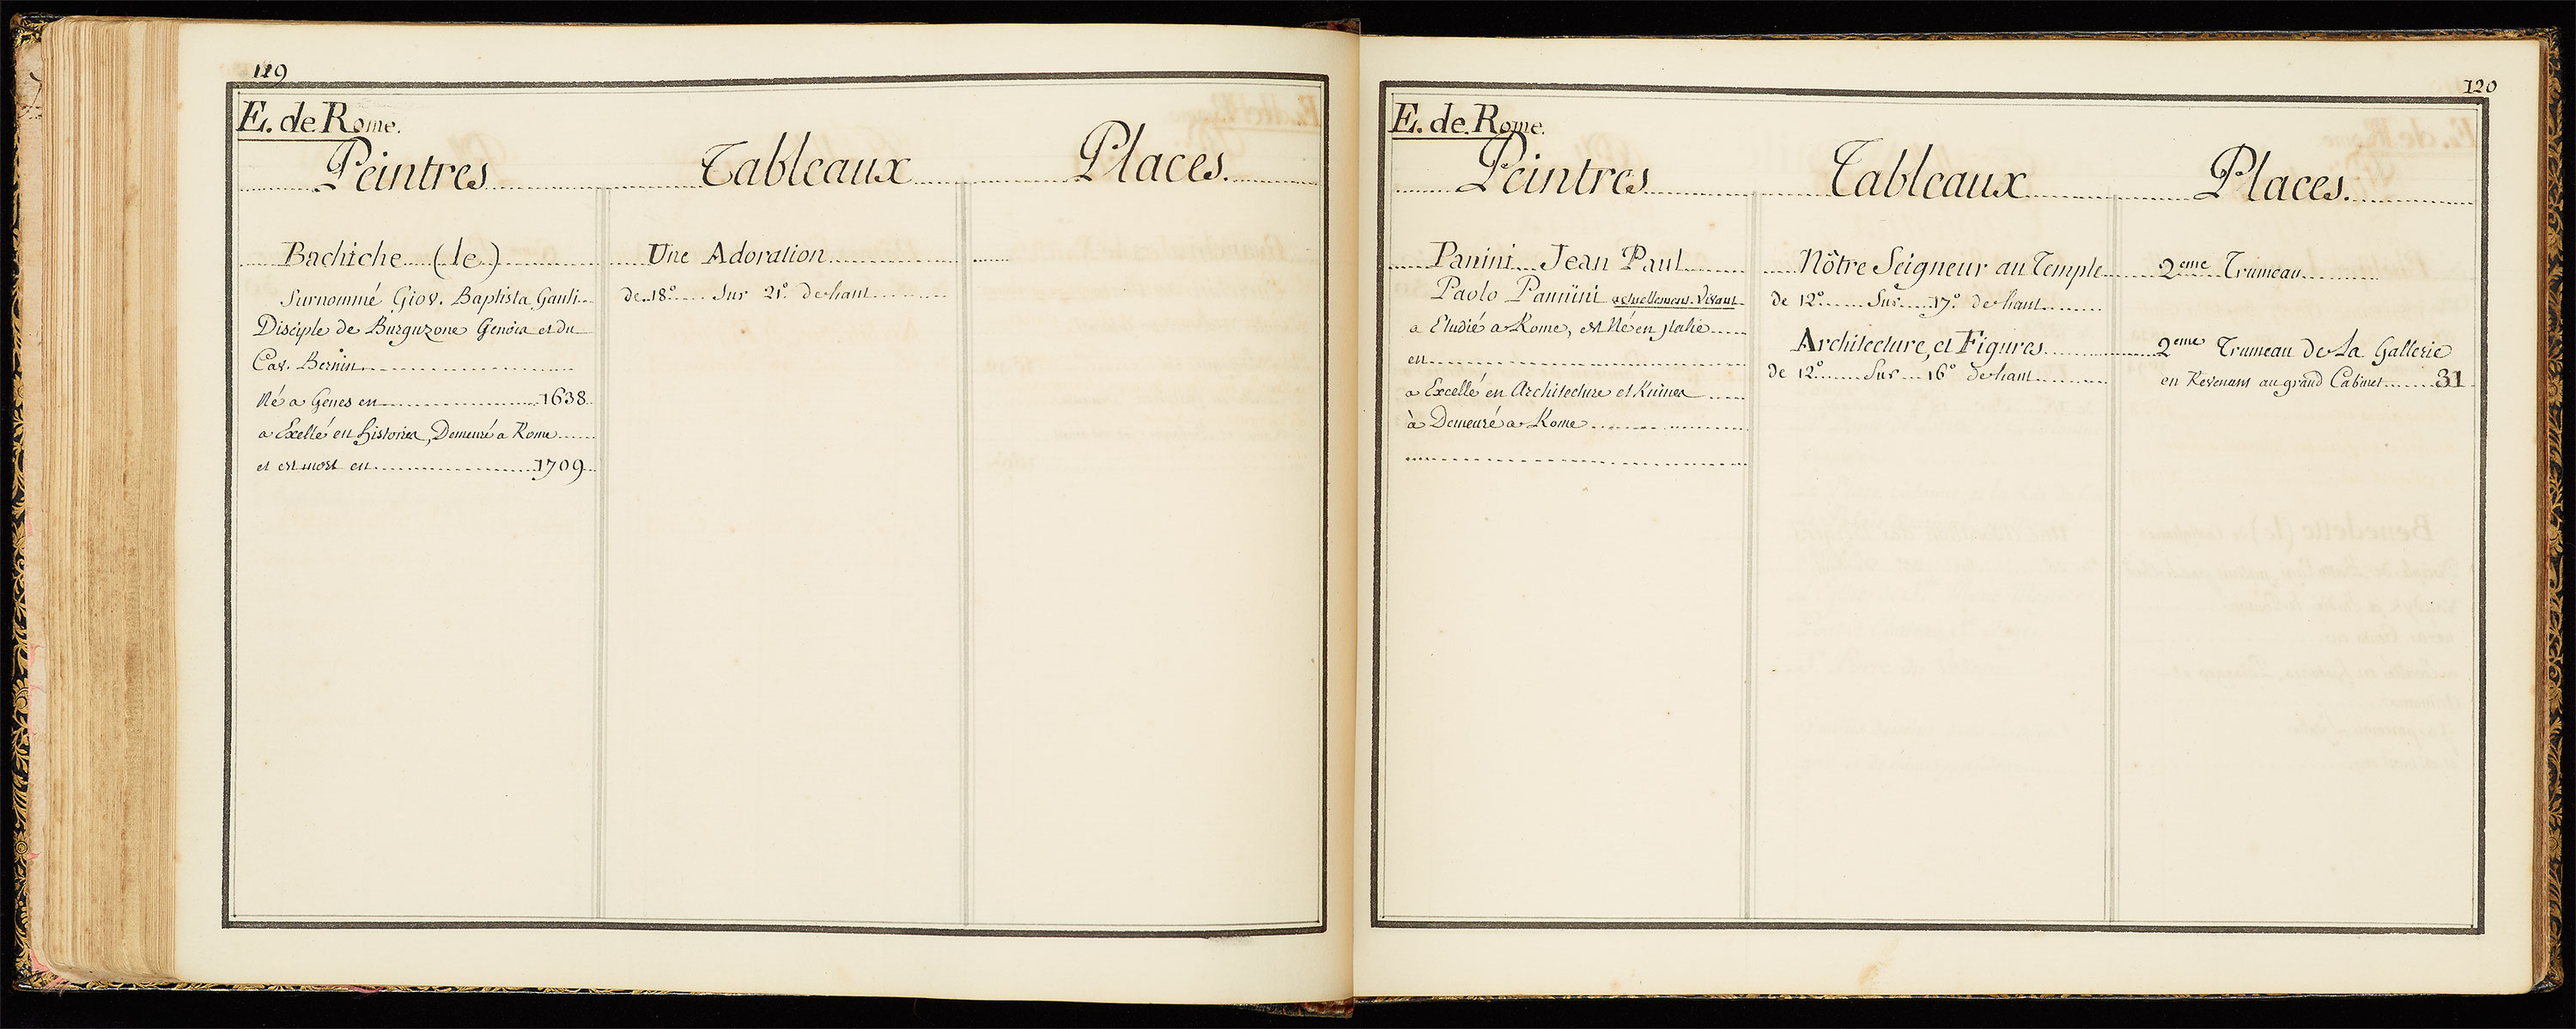 119
E. de Rome.
Peintres Tableaux Places.
Bachiche (le) Une Adoration
Surnommé Giov. Baptista Gauli de 18° Sur 21° de haut
Disciple de Burguzone Genoia et du
Cav. Bernin
Né a Genes en 1638
a Exellé en Histories, Demeuré a Rome
et est mort en 1709
120
E. de Rome.
Peintres Tableaux Places.
Panini Jean Paul Nôtre Seigneur au Temple 2eme Trumeau
Paolo Pannini actuellement Vivant de 12° Sur 17° de haut
a Etudié a Rome, est Né en jtalie Architecture, et Figures 2eme Trumeau de La Gallerie
en de 12° Sur 16° de haut en Revenant au grand Cabinet 31
a Excellé en Architecture et Ruines
à Demeuré a Rome